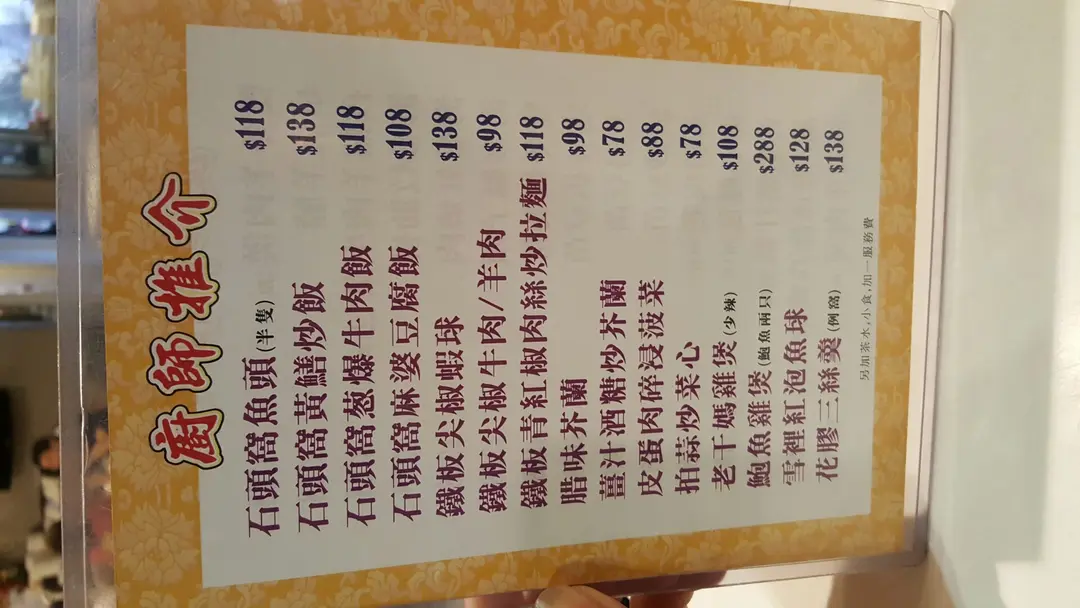 廚師推介
石頭窩魚頭(半隻) $118
石頭窩黃鱔炒飯 $138
石頭窩葱爆牛肉飯 $118
石頭窩麻婆豆腐飯 $108
鐵板尖椒蝦球 $138
鐵板尖椒牛肉/羊肉 $98
鐵板青紅椒肉絲炒拉麵 $118
腊味芥蘭 $98
薑汁酒糖炒芥蘭 $78
皮蛋肉碎浸菠菜 $88
拍蒜炒菜心 $78
老干媽雞煲(少辣) $108
鮑魚雞煲(鮑魚兩只) $288
雪裡紅泡魚球 $128
花膠三絲羹(例窩) $138
另加茶水,小食,加一服務費